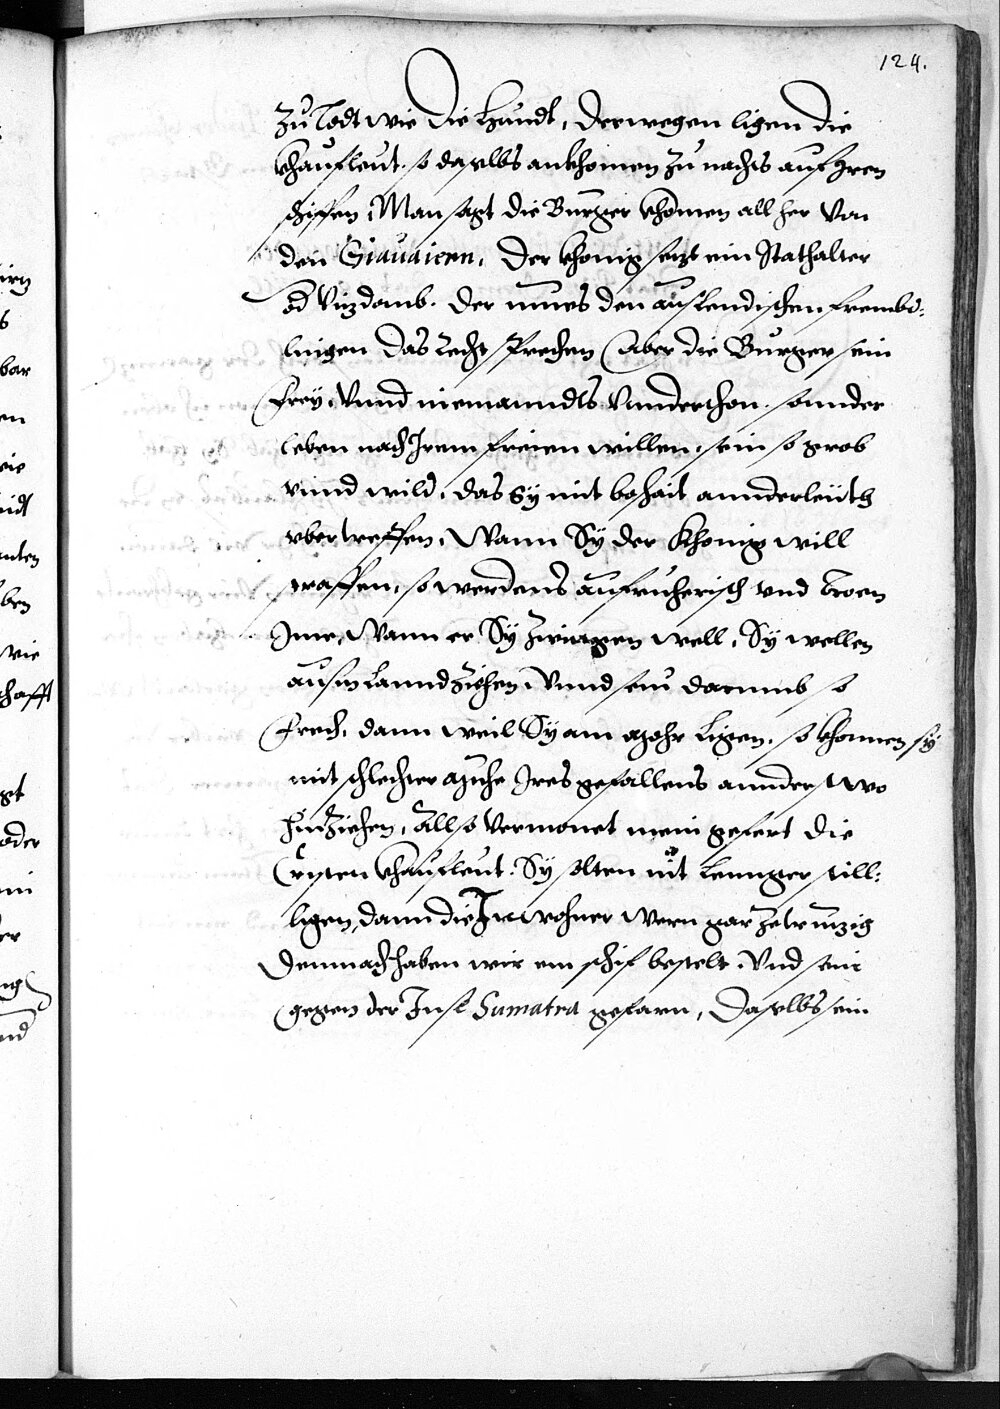 124.
Zu Todt wie die Hundt, Derwegen ligen die
Khaufleut. so daselbs ankhomen zu nachts auf Iren
schiffen, Man sagt die Burger khomen all her von
den Giauaiern, Der khonig setzt ein Stathalter
od Vizdomb. der mues den auslendischen frembd=
lingen das Recht sprechen Aber die Burger sein
frey, Vnnd niemanndts Vnnderthon. sonnder
leben nach Irem freien willen, sein so grob
vnnd wild, das Sy mit boshait annder leüth
vbertreffen, Wann Sy der Khonig will
straffen, so werdens aufruherisch vnd troen
Ime, Wann er Sy zwingen well, Sy wellen
ausm Lannd ziehen, Vnnd sein darumb so
frech, dann weil Sy am Mohr ligen, so khonnen sy
mit schlechter muhe Ires gefallens annderst wo
hinziehen, Allso vermonet mein gefert die
Cristen khaufleut. Sy solten nit lennger still=
ligen, dann die Inwohner wern gar zetrutzig
Demnach haben wir ein schif bestelt, Vnd sein
gegen der Insl Sumatra gefarn, Daselbs sein